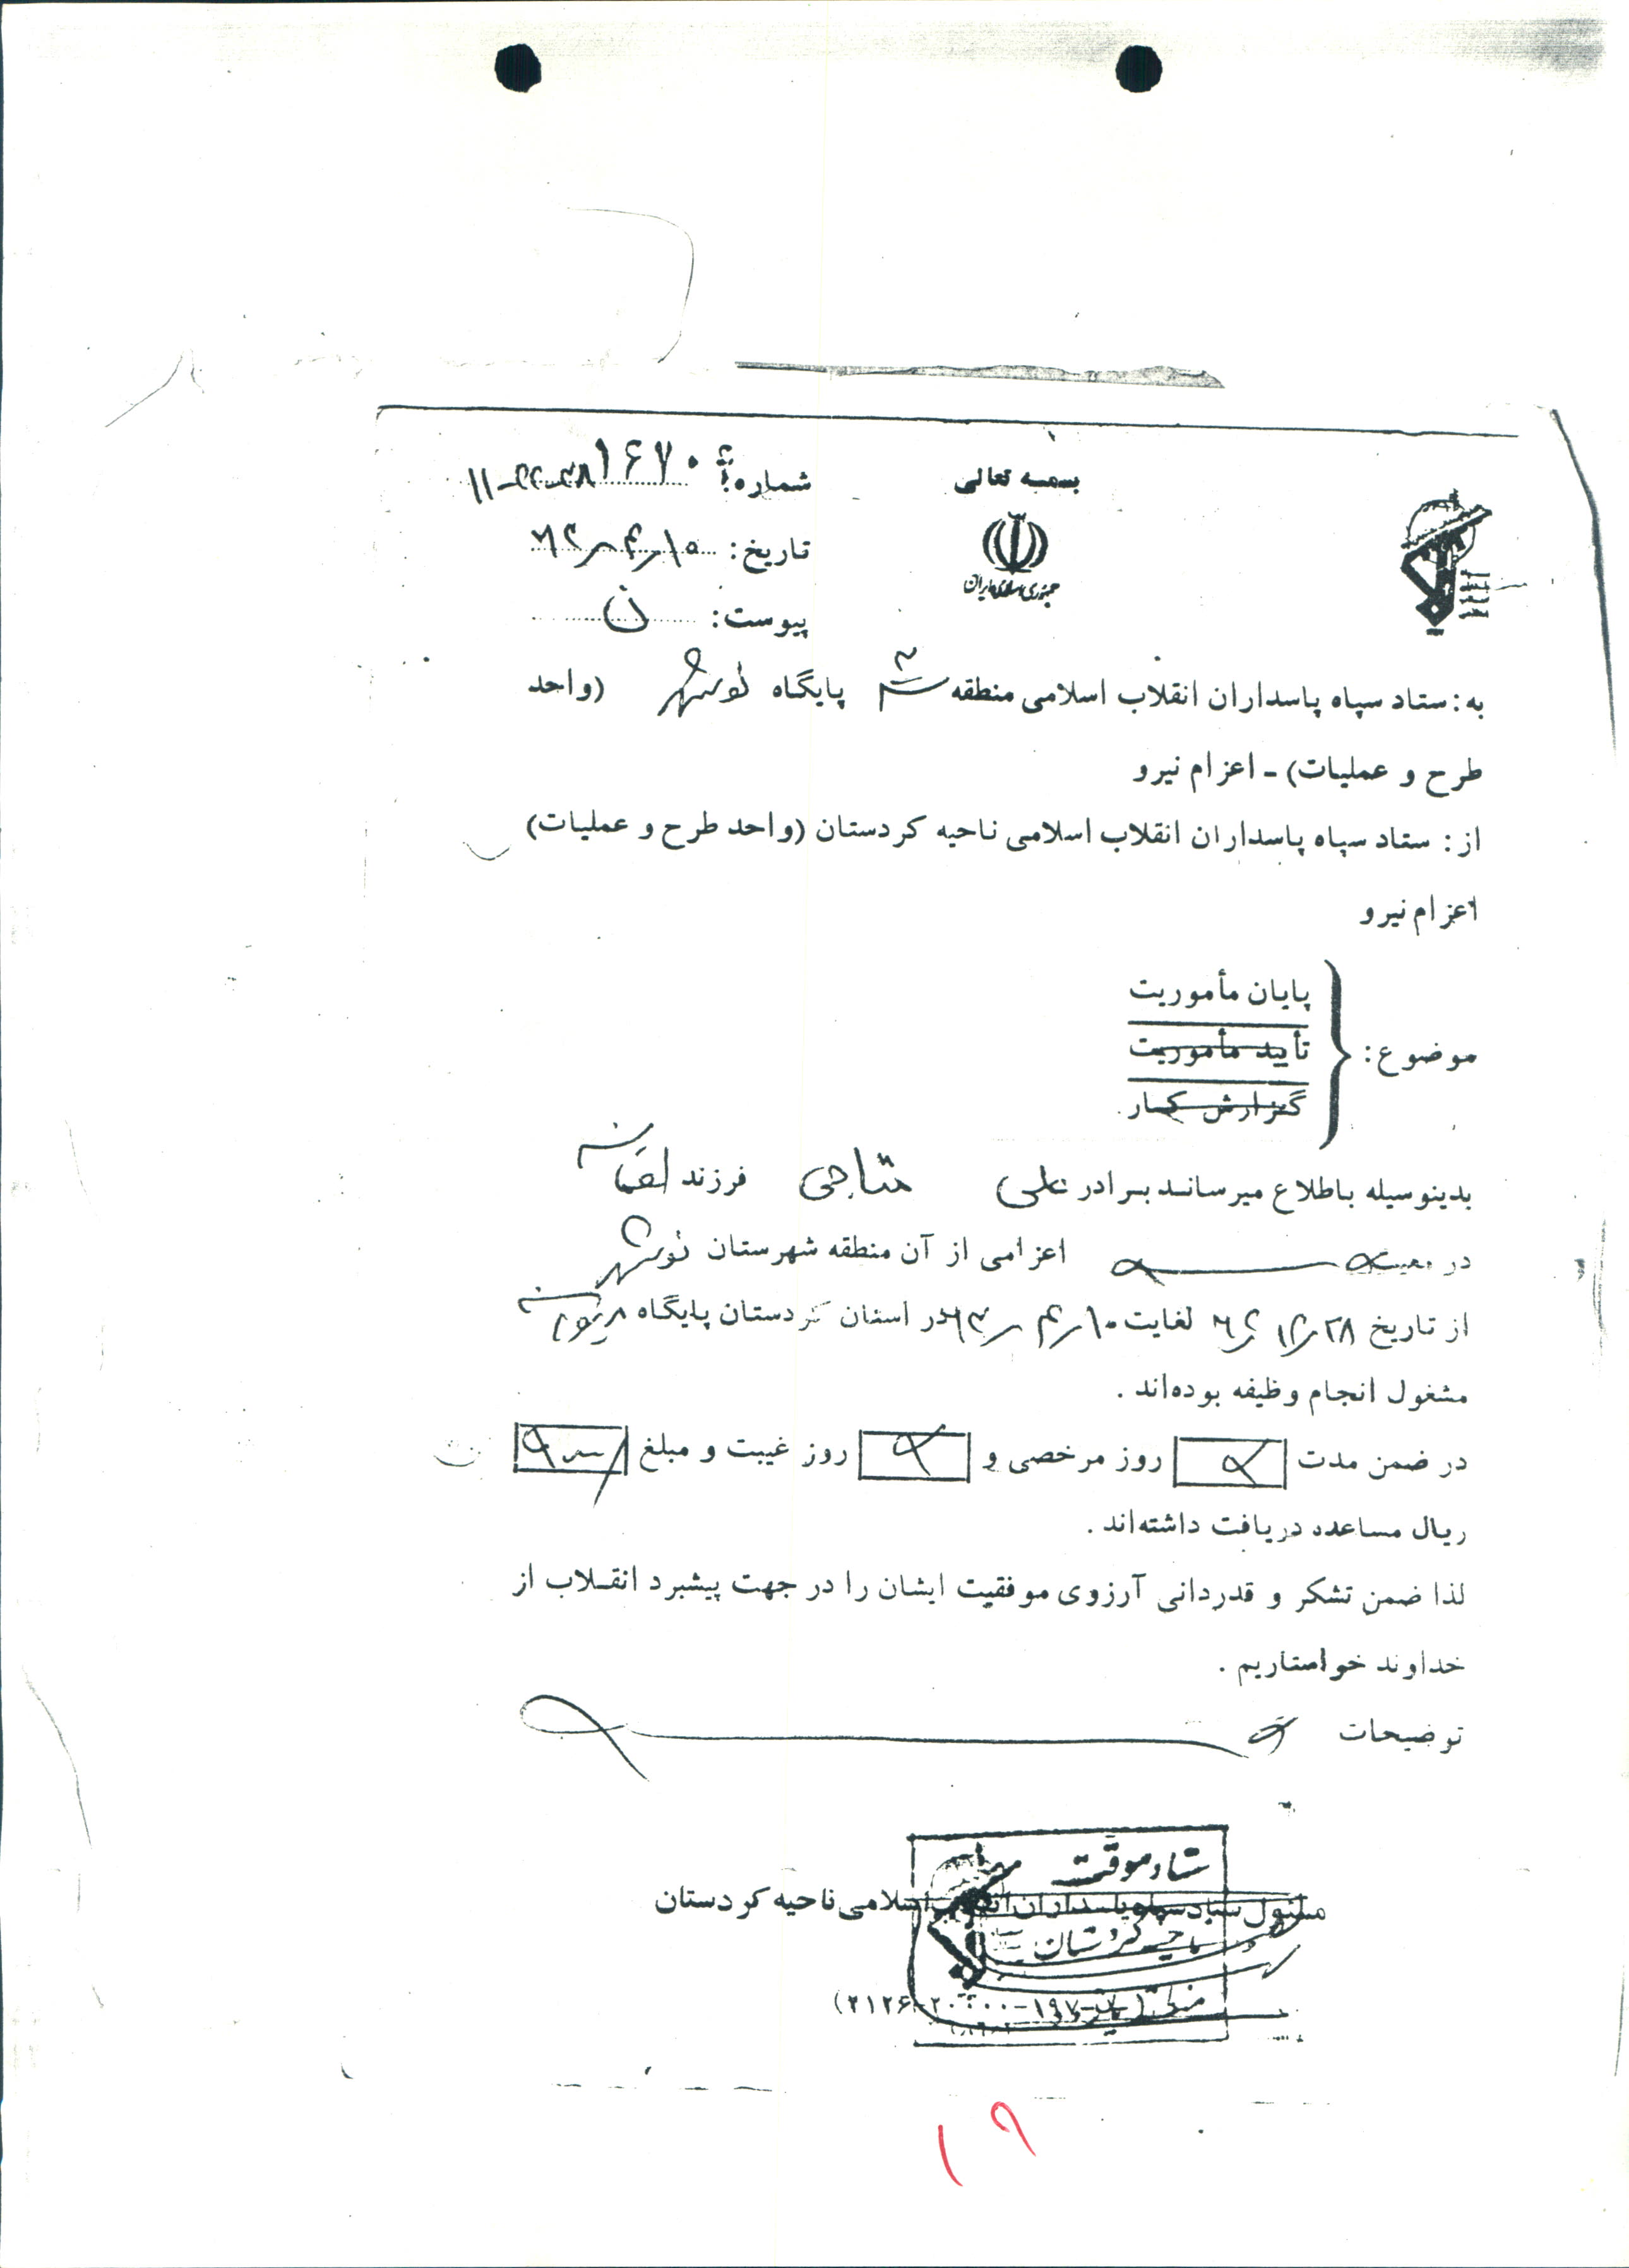 بسمه تعالی
جمهوری اسلامی ایران
شماره: ۱۶۷۰
تاریخ: ۱۰ر۴ر۶۳
پیوست: ن
به: ستاد سپاه پاسداران انقلاب اسلامی منطقه ۳ پایگاه نوشهر (واحد
طرح و عملیات) ـ اعزام نیرو
از: ستاد سپاه پاسداران انقلاب اسلامی ناحیه کردستان (واحد طرح و عملیات)
اعزام نیرو
موضوع:
پایان مأموریت
تأیید مأموریت
گزارش کار
بدینوسیله باطلاع میرساند برادر علی متاجی فرزند
در معیت اعزامی از آن منطقه شهرستان نوشهر
از تاریخ لغایت ۱۰ر۴ر۶۳ در استان کردستان پایگاه مریوان
مشغول انجام وظیفه بوده‌اند .
در ضمن مدت روز مرخصی و روز غیبت و مبلغ
ریال مساعده دریافت داشته‌اند .
لذا ضمن تشکر و قدردانی آرزوی موفقیت ایشان را در جهت پیشبرد انقلاب از
خداوند خواستاریم .
توضیحات
ستاد موقت
مسئول ستاد سپاه پاسداران انقلاب اسلامی ناحیه کردستان
ناحیه کردستان
۱۹